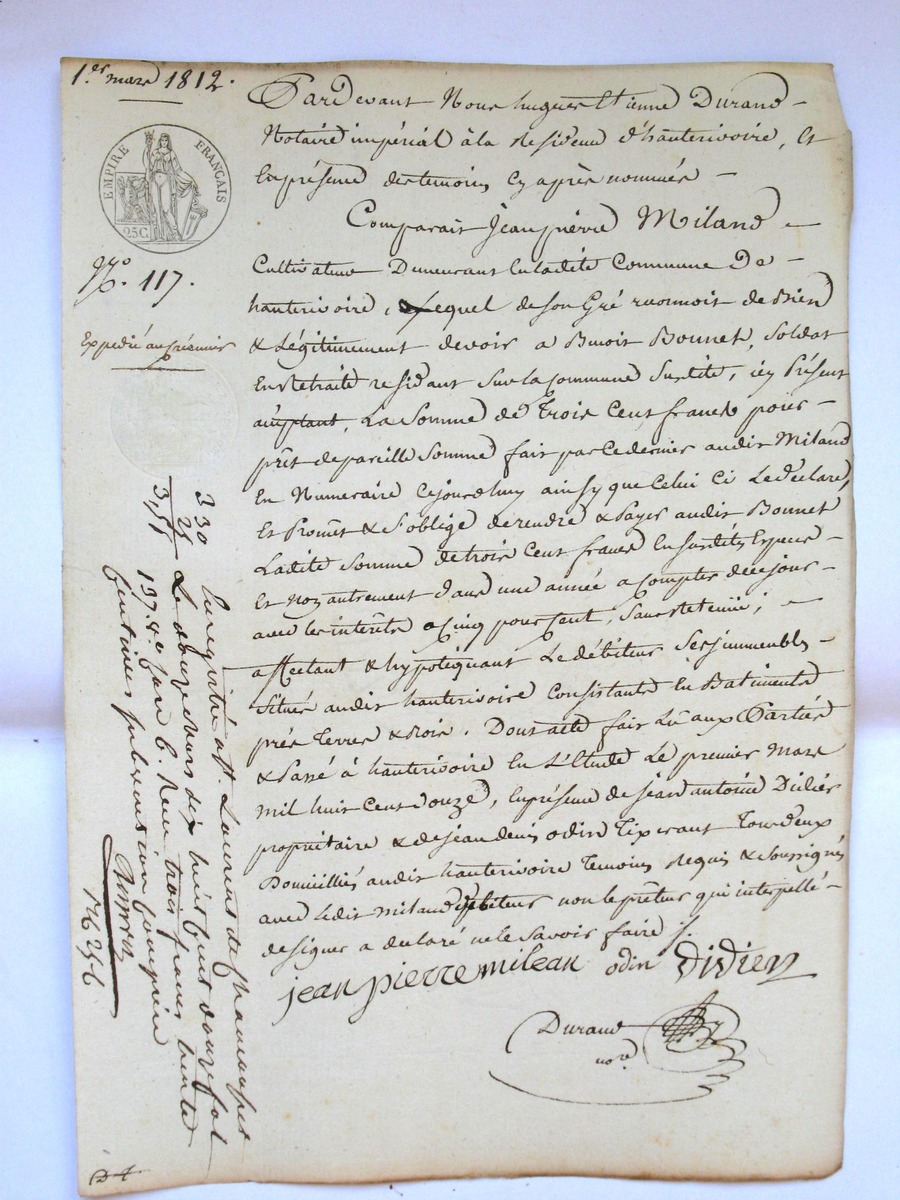 1.er mars 1812.
EMPIRE FRANÇAIS
25C.
N.o 117.
Expedié au créancier
Pardevant Nous hugues Etienne Durand
Notaire impérial à la residence d'hauterivoire, et
En présence des temoins cy après nommés
Comparait Jean pierre Miland
Cultivateur Demeurant en ladite Commune De
hauterivoire, Lequel de son Gré reconnoit de Bien
& Légitimement devoir a Benoit Bonnet, soldat
En Retraite residant sur la commune susdite, icy Présent
acceptant, La Somme de Trois Cent francs pour
prêt de pareille Somme fait par ce dernier audit Miland
En Numeraire cejourdhuy ainsy que Celui ci Le déclare,
Et Promet & s'oblige de rendre & Payer audit Bonnet
Ladite Somme de trois Cent francs En susdites Especes
Et non autrement dans une année a compter de ce jour
avec les interêts a Cinq pour Cent, sans retenue;
affectant & hypotéquant Le débiteur ses immeubles
Situés audit hauterivoire Consistants En Batiments
prés Terres & Bois. Dont acte fait Lû aux Parties
& Passé à hauterivoire En L'Etude Le premier Mars
Mil huit Cent douze, En présence de jean antoine Didier
propriétaire & de jean denis odin Tixerant Tous deux
Domiciliés audit hauterivoire temoins Requis & Soussignés
avec Ledit miland débiteur non le prêteur qui interpellé
de signer a déclaré ne le savoir faire ./.
jean pierre milean odin Didier
Durand
no.re
3 30
25
3,55
Enregistré a St. Laurent de Chamousset
Le douze mars dix huit Cent douze fol
197. Reçu trois francs trente
Centimes subvention comprise